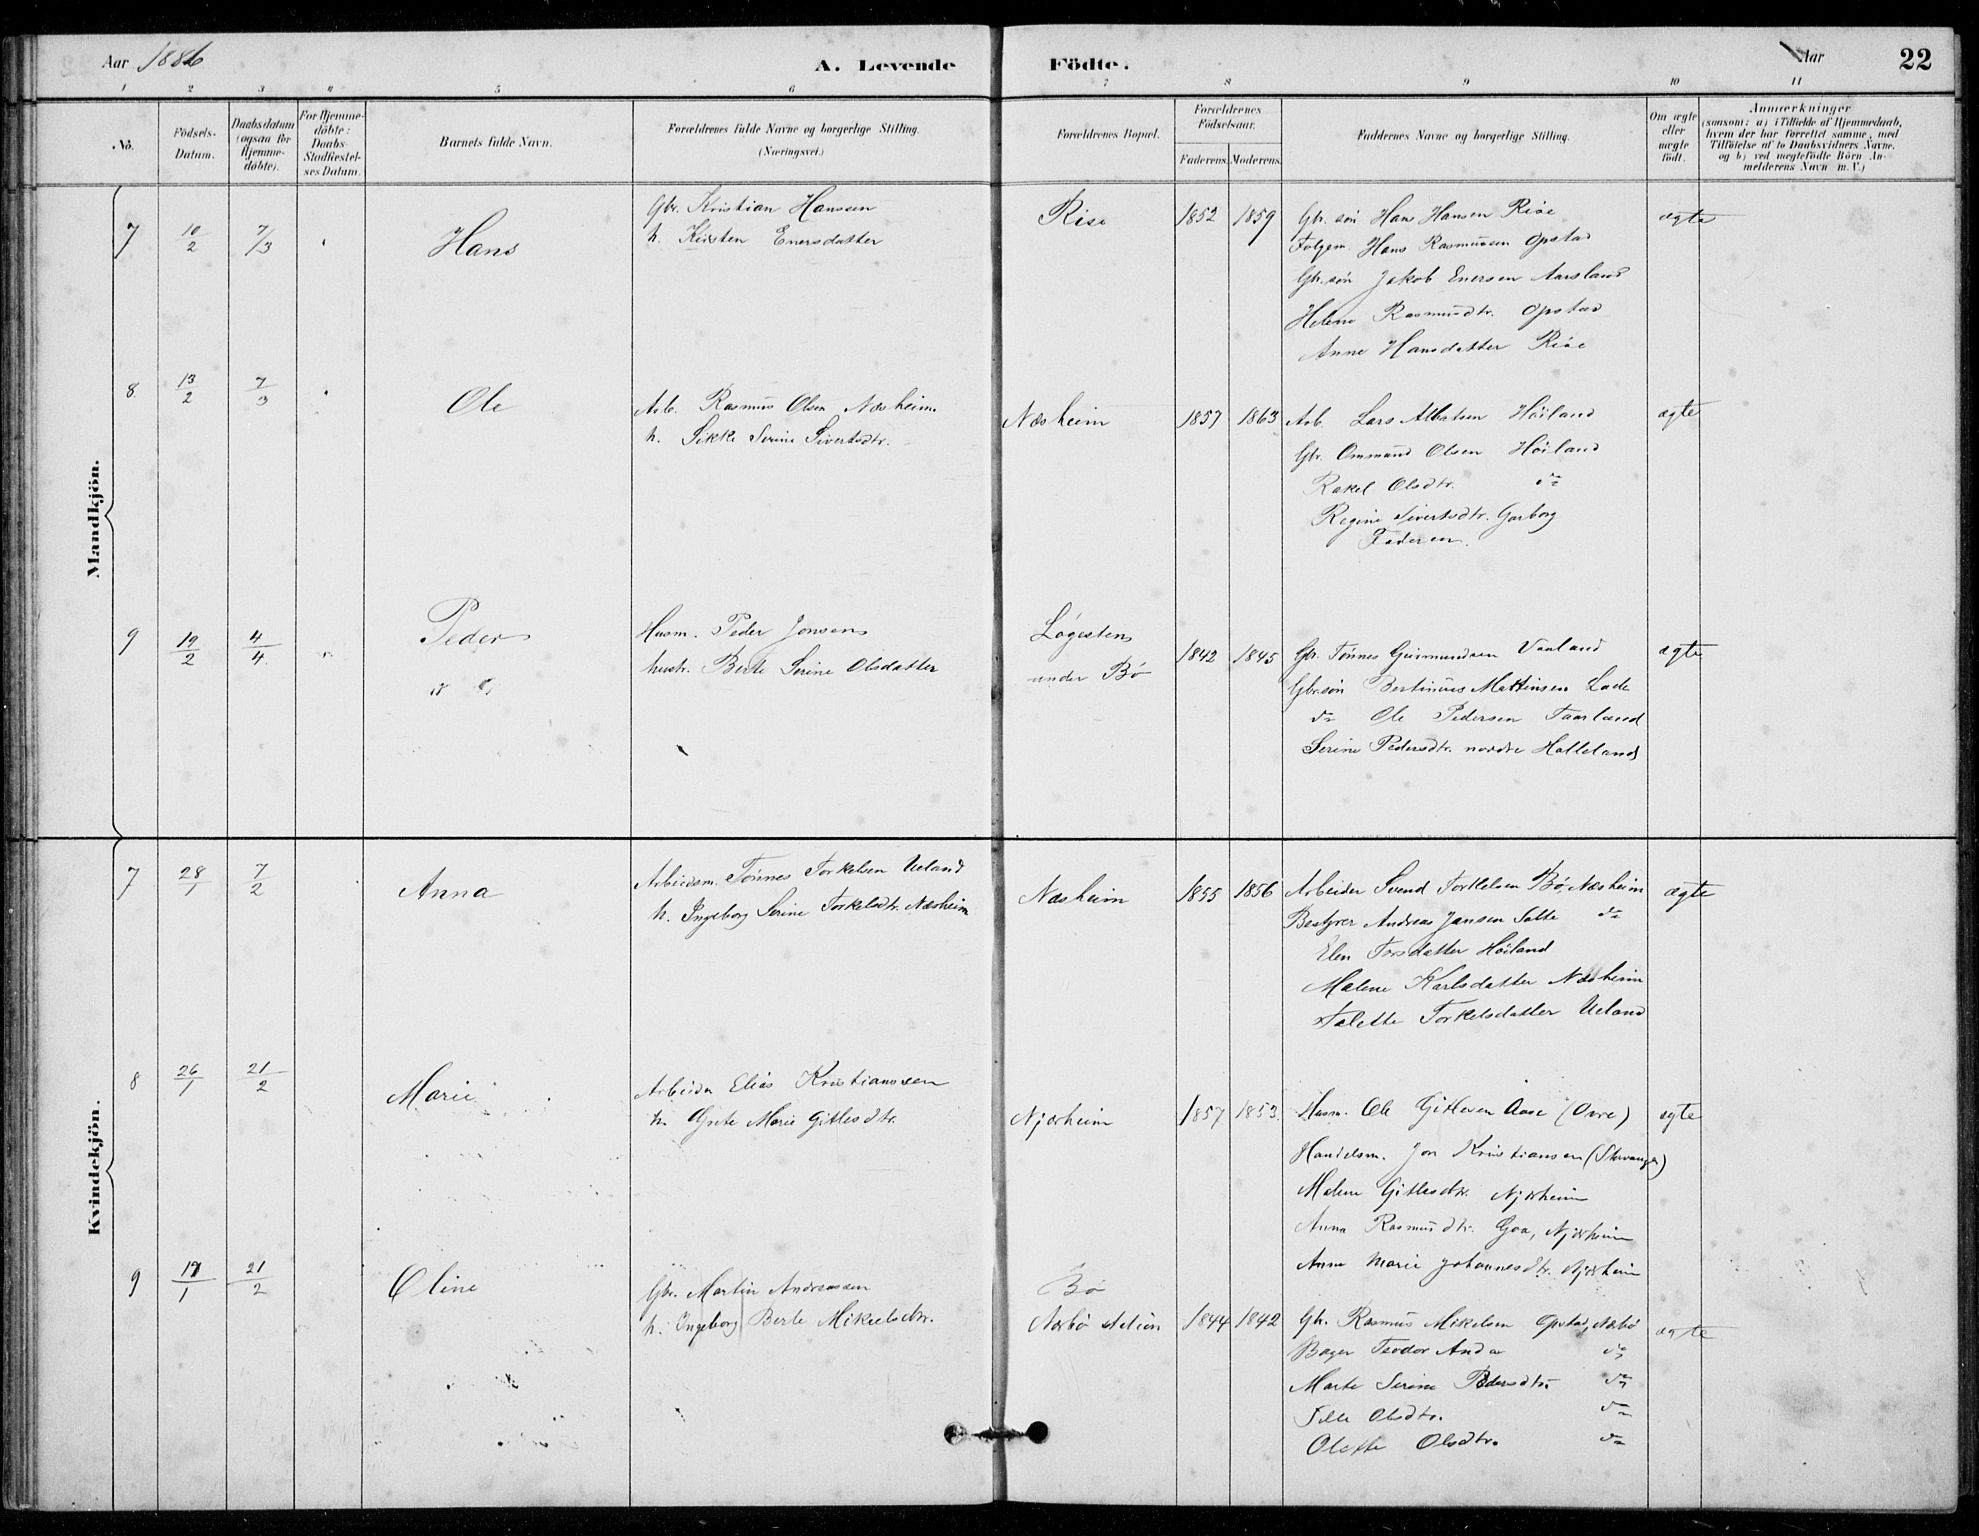 Aar 1886
A. Levende Födte.
Aar 22
1 2 3 4 5 6 7 8 9 10 11
No.
Födsels-Datum.
Daabsdatum (ogsaa for Hjemme-döbte).
For Hjemme-döbte: Daabs-Stadfæstel-ses Datum.
Barnets fulde Navn.
Forældrenes fulde Navne og borgerlige Stilling.
(Næringsvei.)
Forældrenes Bopæl.
Forældrenes Födselsaar.
Faderens. Moderens.
Faddernes Navne og borgerlige Stilling.
Om ægte eller uægte födt.
Anmærkninger
(saasom: a) i Tilfælde af Hjemmedaab, hvem der har forrettet samme, med Tilföielse af to Daabsvidners Navne, og b) ved uægtefödte Börn An-melderens Navn m. V.)
Mandkjön.
7 10/2 7/3 Hans
Gbr. Kristian Hanssen
h. Kirsten Enersdatter
Rise 1852 1859
Gbr. søn Hans Hansen Rise
Folgem. Hans Rasmussen Opstad
Gbr. søn Jakob Enersen Aarsland
Helene Rasmusdtr. Opstad
Anne Hansdatter Rise
ægte
8. 13/2 7/3 Ole
Arb. Rasmus Olsen Næsheim
h. Sikke Serine Sivertsdtr.
Næsheim 1857 1863
Arb. Lars Albertsen Höiland
Gbr. Ommund Olsen Höiland
Rakel Olsdtr. do
Regine Sivertsdtr. Garborg
Faderen.
ægte
9 19/2 4/4 Peder
Husm. Peder Jonsen
hustr. Berte Serine Olsdatter
Løgesten
under Bø
1842 1845
Gbr. Tønnes Guvmundsen Varland
Gbr.søn Bertinius Mettinsen Lade
do Ole Pedersen Taarland
Serine Pedersdtr. nordre Halleland
ægte
Kvindekjön.
7 28/1 7/2 Anna
Arbeidsm. Tönnes Torkelsen Ueland
h. Ingeborg Serine Torkelsdtr. Næsheim
Næsheim 1855 1856
Arbeider Svend Torkelsen Bø, Næsheim
Bestyrer Andreas Jansen Salte do
Elen Torsdatter Höiland
Malene Karlsdatter Næsheim
Talette Torkelsdatter Ueland
ægte
8 26/1 21/2 Marie
Arbeider Elias Kristianssen
h. Grete Marie Gitlesdtr.
Njærheim 1857 1853
Husm. Ole Gitlesen Aase (Ovre)
Handelsm. Jon Kristiansen (Stavanger)
Malene Gitlesdtr. Njærheim
Anna Rasmusdtr. Goa, Njærheim
Anne Marie Johannesdtr. Njærheim
ægte
9 17/1 21/2 Oline
Gbr. Martin Andreassen
h. Ingeborg Berte Mikkelsdtr.
Bø
Nærbø station 1844 1842
Gbr. Rasmus Mikelsen Opstad, Nærbø
Bager Teodor Anda do
Marte Serine Pedersdtr. do
Olsdtr. do
Olette Olsdtr. do
ægte